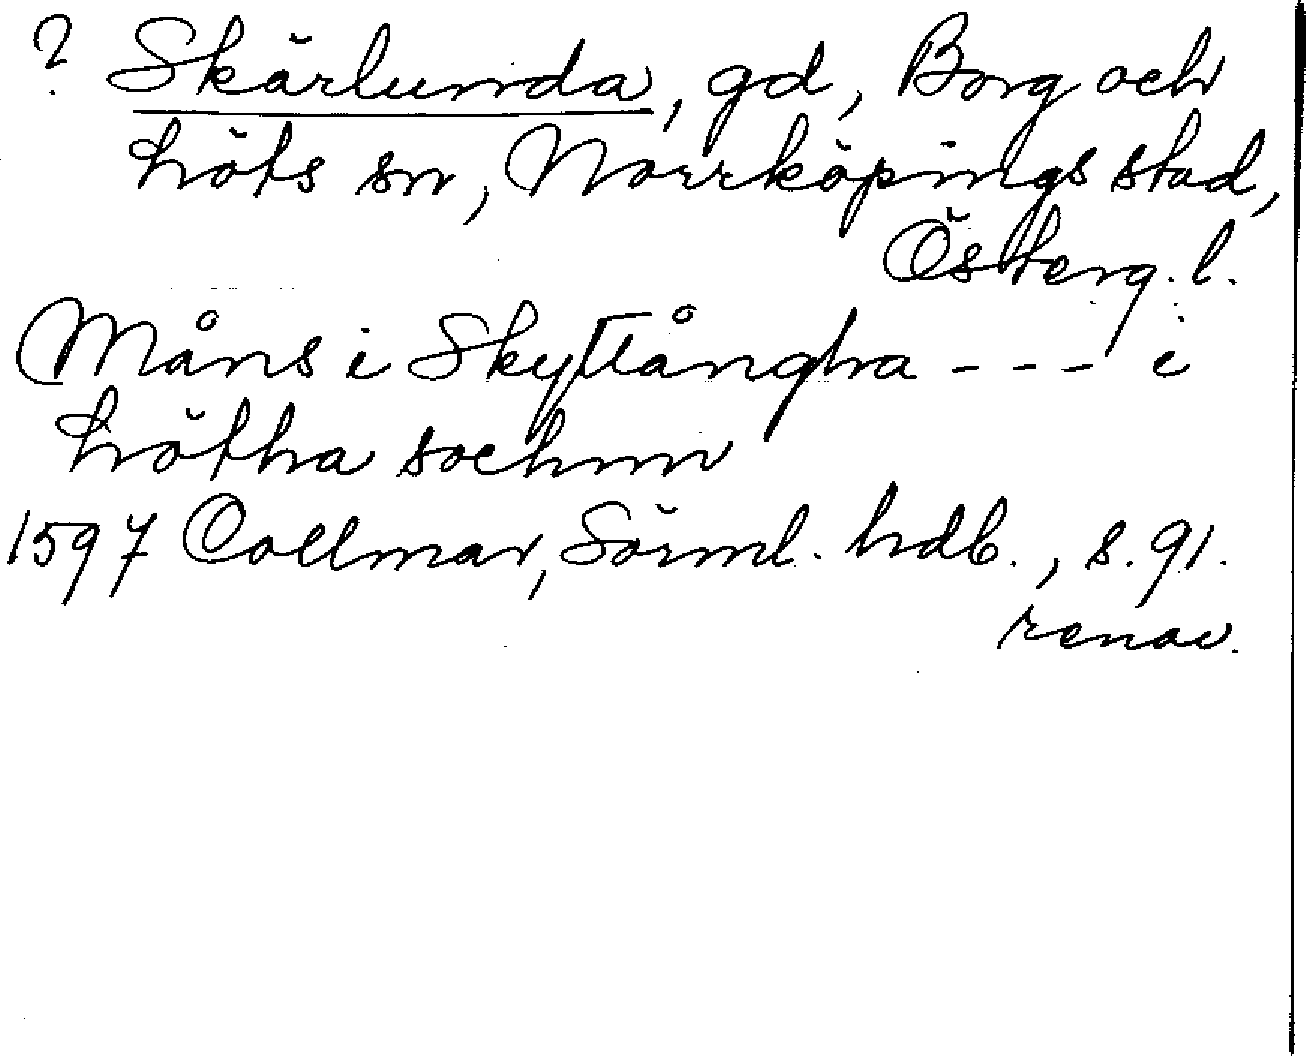 ? Skärlunda, gd, Borg och
Löts sn, Norrköpings stad,
Österg. l.
Måns i Skyttångha - - - i
Lötha sochnn
1597 Collmar, Sörml. hdb., s. 91.
renov.